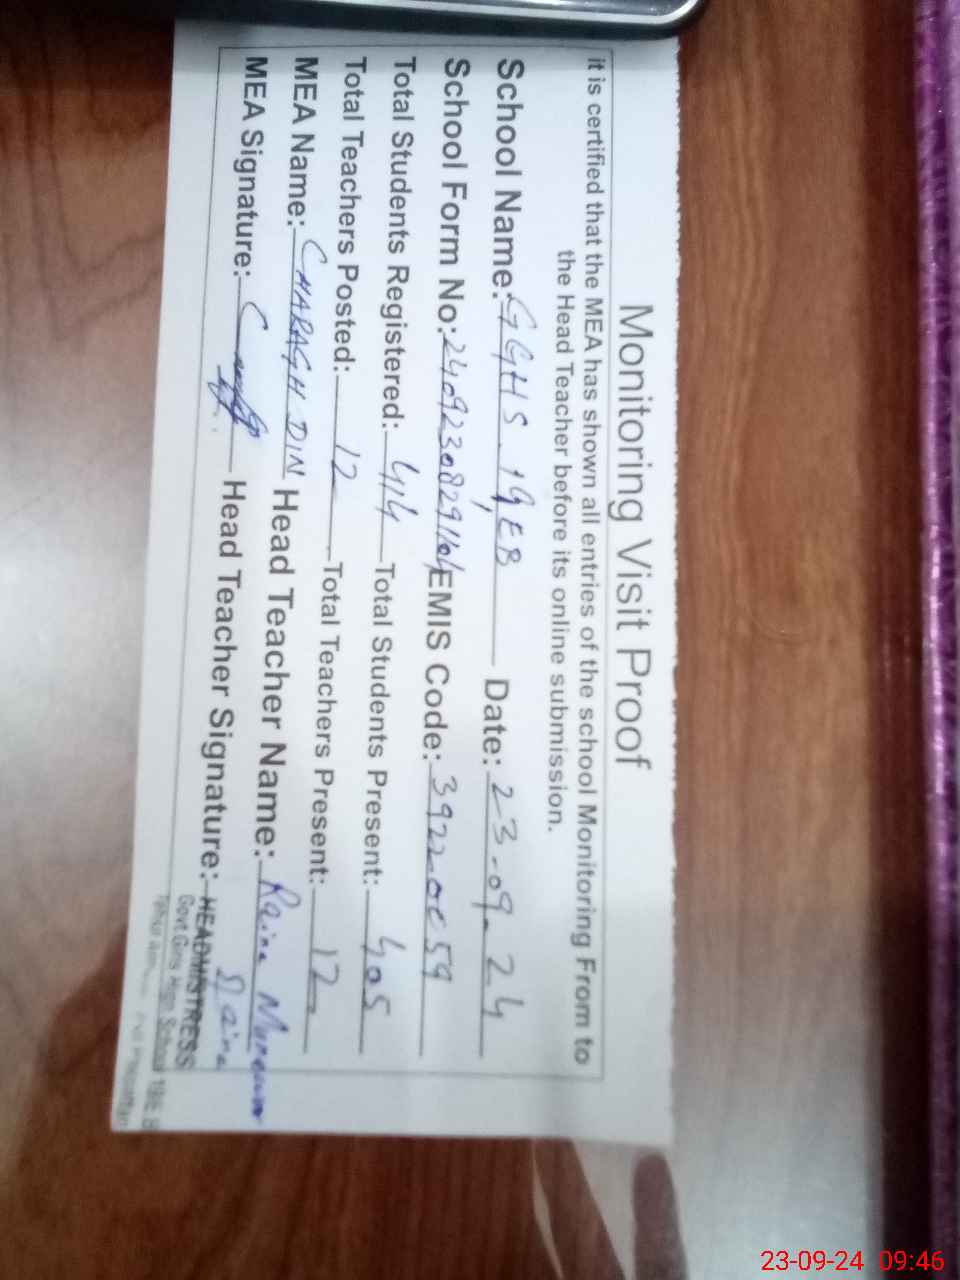 Monitoring Visit Proof
it is certified that the MEA has shown all entries of the school Monitoring From to
the Head Teacher before its online submission.
School Name: GGHS. 19 EB Date: 23-09-24
School Form No: EMIS Code:
Total Students Registered: 414 Total Students Present: 405
Total Teachers Posted: 12 Total Teachers Present: 12
MEA Name: CHARAGH DIN Head Teacher Name:
MEA Signature: Head Teacher Signature:
HEADMISTRESS
Govt Girls High School
23-09-24 09:46